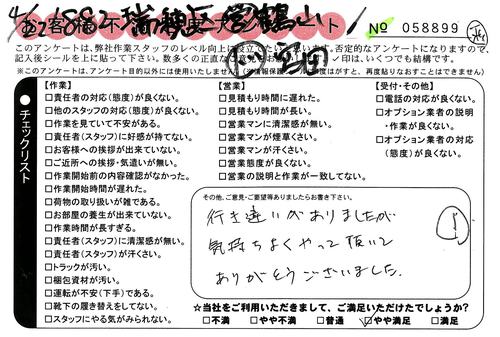 4/1 1882 瑞穂区 営 鶴山
お客様 不 ート
№ 058899
このアンケートは、弊社作業スタッフのレベル向上に役立て 思います。否定的なアンケートになりますので、
記入後シールを上に貼って下さい。数多くの正直な 印は、いくつでも結構です。
※このアンケートは、アンケート目的以外には使用いたしません 障がすがと、再度貼りなおすことはできません)
チェックリスト
【作業】
□責任者の対応(態度)が良くない。
□他のスタッフの対応(態度)が良くない。
□作業を見ていて不安がある。
□責任者(スタッフ)に好感が持てない。
□お客様への挨拶が出来ていない。
□ご近所への挨拶・気遣いが無い。
□作業開始前の内容確認がなかった。
□作業開始時間が遅れた。
□荷物の取り扱いが雑である。
□お部屋の養生が出来ていない。
□作業時間が長すぎる。
□責任者(スタッフ)に清潔感が無い。
□責任者(スタッフ)が汗くさい。
□トラックが汚い。
□梱包資材が汚い。
□運転が不安(下手)である。
□靴下の履き替えをしてない。
□スタッフにやる気がみられない。
【営業】
□見積もり時間に遅れた。
□見積もり時間が長い。
□営業マンに清潔感が無い。
□営業マンが煙草くさい。
□営業マンが汗くさい。
□営業態度が良くない。
□営業の説明と作業が一致してない。
【受付・その他】
□電話の対応が良くない。
□オプション業者の説明
・作業が良くない。
□オプション業者の対応
(態度)が良くない。
その他、ご意見・ご要望等ありましたらお書き下さい。
行き違いがありましたが
気持ちよくやって頂いて
ありがとうございました。
☆当社をご利用いただきまして、ご満足いただけたでしょうか?
□不満 □やや不満 □普通 ☑やや満足 □満足